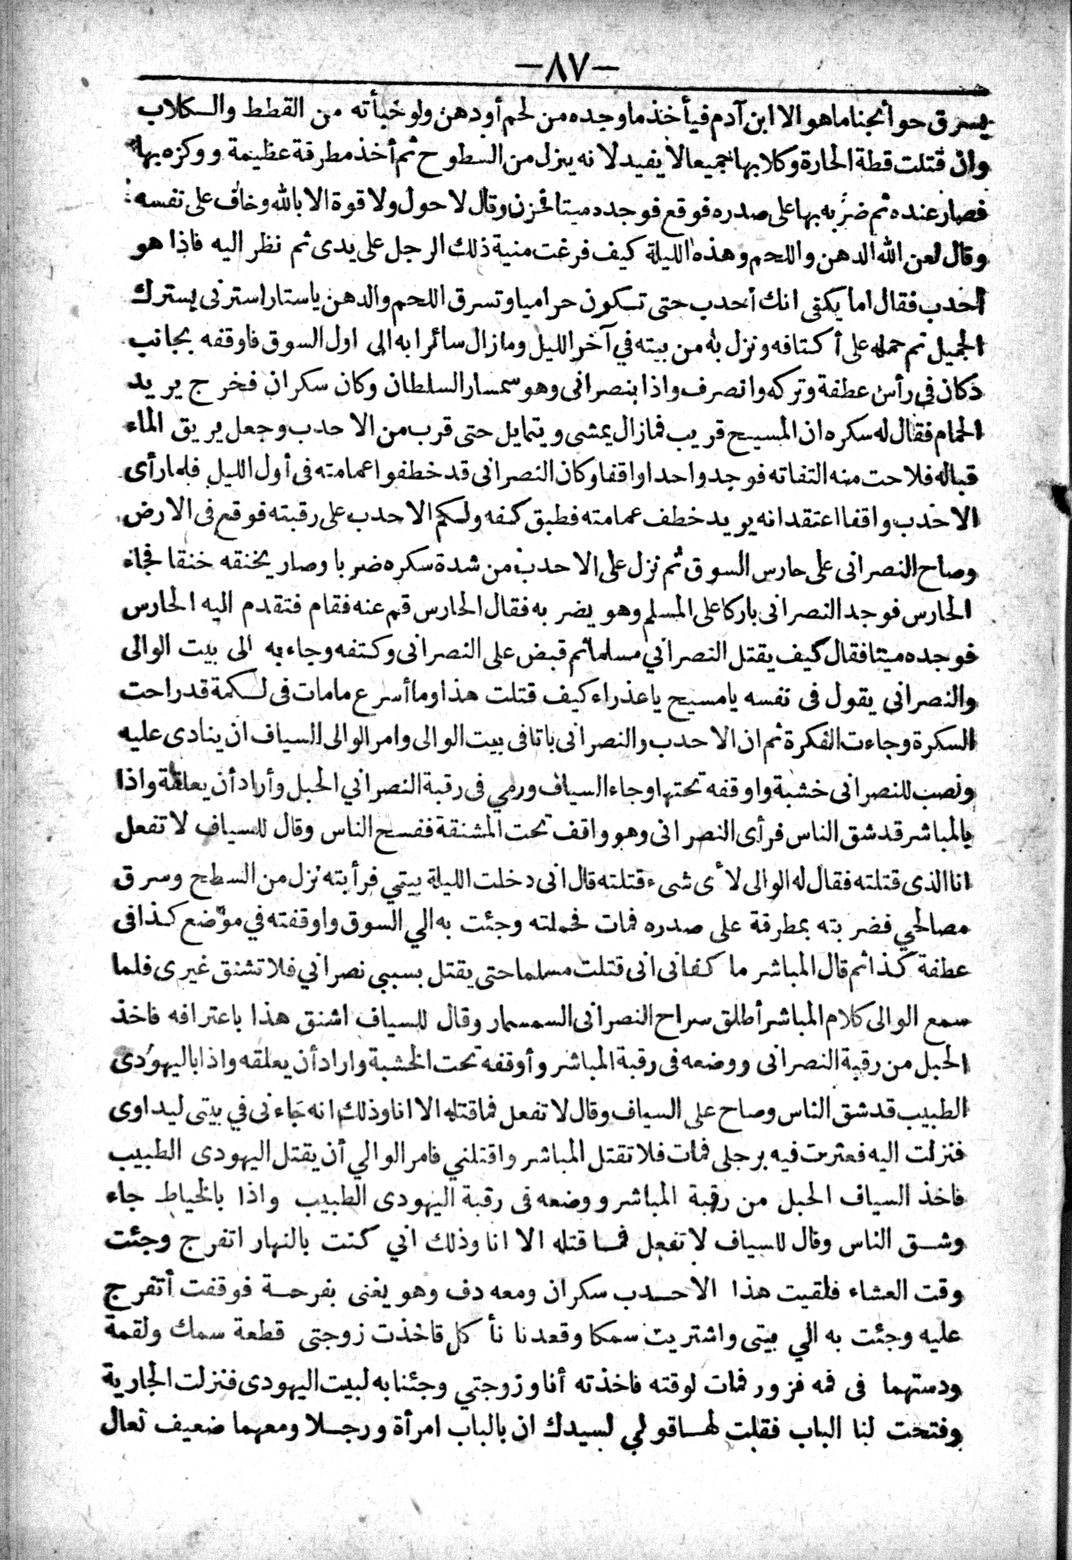 -٨٧-
يسرق حوائجنا ما هو الا ابن آدم فيأخذ ما وجده من لحم أو دهن ولو خبأته من القطط والكلاب
وان قتلت قطة الحارة وكلابها جميعا لا يفيد لانه ينزل من السطوح ثم أخذ مطرقة عظيمة ووكزه بها
فصار عنده ثم ضربه بها على صدره فوقع فوجده ميتا فحزن وقال لا حول ولا قوة الا بالله وخاف على نفسه
وقال لعن الله الدهن واللحم وهذه الليلة كيف فرغت منية ذلك الرجل على يدى ثم نظر اليه فاذا هو
أحدب فقال اما يكفى انك أحدب حتى تكون حراميا وتسرق اللحم والدهن ياستار استرنى بسترك
الجميل ثم حمله على أكتافه ونزل به من بيته في آخر الليل ومازال سائرا به الى اول السوق فاوقفه بجانب
دكان فى رأس عطفة وتركه وانصرف واذا بنصرانى وهو سمسار السلطان وكان سكران فخرج يريد
الحمام فقال له سكره ان المسيح قريب فمازال يمشى ويتمايل حتى قرب من الاحدب وجعل يريق الماء
قباله فلاحت منه التفاته فوجد واحدا واقفا وكان النصرانى قد خطفوا عمامته فى أول الليل فلما رأى
الاحدب واقفا اعتقد انه يريد خطف عمامته فطبق كفه ولكم الاحدب على رقبته فوقع فى الارض
وصاح النصرانى على حارس السوق ثم نزل على الاحدب من شدة سكره ضربا وصار يخنقه خنقا فجاء
الحارس فوجد النصرانى باركا على المسلم وهو يضربه فقال الحارس قم عنه فقام فتقدم اليه الحارس
فوجده ميتا فقال كيف يقتل النصراني مسلما ثم قبض على النصرانى وكتفه وجاء به الى بيت الوالى
والنصرانى يقول فى نفسه يا مسيح يا عذراء كيف قتلت هذا وما أسرع مامات فى لكمة قد راحت
السكرة وجاءت الفكرة ثم ان الاحدب والنصرانى باتا فى بيت الوالى وامر الوالى السياف ان ينادى عليه
ونصب للنصرانى خشبة واوقفه تحتها وجاء السياف ورمي فى رقبة النصراني الحبل وأراد أن يعلقه واذا
بالمباشر قد شق الناس فرأى النصرانى وهو واقف تحت المشنقة ففسح الناس وقال للسياف لا تفعل
انا الذى قتلته فقال له الوالى لأى شىء قتلته قال انى دخلت الليلة بيتي فرأيته نزل من السطح وسرق
مصالحي فضربته بمطرقة على صدره فمات فحملته وجئت به الي السوق واوقفته في موضع كذا فى
عطفة كذا ثم قال المباشر ما كفانى انى قتلت مسلما حتى يقتل بسببي نصراني فلا تشنق غيرى فلما
سمع الوالى كلام المباشر أطلق سراح النصرانى السمسار وقال للسياف اشنق هذا باعترافه فاخذ
الحبل من رقبة النصرانى ووضعه فى رقبة المباشر وأوقفه تحت الخشبة واراد أن يعلقه واذا باليهودى
الطبيب قد شق الناس وصاح على السياف وقال لا تفعل فما قتله الا انا وذلك انه جاءنى في بيتى ليداوى
فنزلت اليه فعثرت فيه برجلى فمات فلا تقتل المباشر واقتلني فامر الوالي أن يقتل اليهودى الطبيب
فاخذ السياف الحبل من رقبة المباشر ووضعه فى رقبة اليهودى الطبيب واذا بالخياط جاء
وشق الناس وقال للسياف لا تفعل فما قتله الا انا وذلك اني كنت بالنهار اتفرج وجئت
وقت العشاء فلقيت هذا الاحدب سكران ومعه دف وهو يغنى بفرحة فوقفت أتفرج
عليه وجئت به الي بيتى واشتريت سمكا وقعدنا نأكل فاخذت زوجتى قطعة سمك ولقمة
ودستهما فى فمه فزور فمات لوقته فاخذته أنا وزوجتي وجئنا به لبيت اليهودى فنزلت الجارية
وفتحت لنا الباب فقلت لها قولي لسيدك ان بالباب امرأة ورجلا ومعهما ضعيف تعال